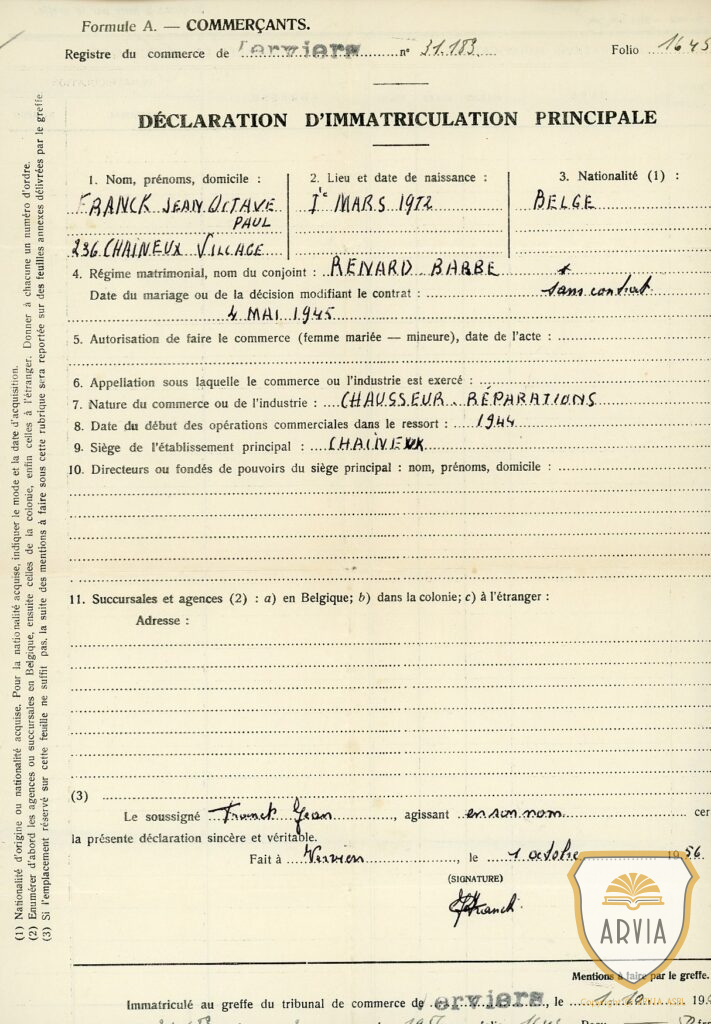 Formule A. — COMMERÇANTS.
Registre du commerce de Verviers n° 31.183 Folio 1645
DÉCLARATION D'IMMATRICULATION PRINCIPALE
1. Nom, prénoms, domicile : 2. Lieu et date de naissance : 3. Nationalité (1) :
FRANCK JEAN OCTAVE 1e MARS 1912 BELGE
PAUL
236 CHAINEUX VILLAGE
4. Régime matrimonial, nom du conjoint : RENARD BARBE
Date du mariage ou de la décision modifiant le contrat : sans contrat
4 MAI 1945
5. Autorisation de faire le commerce (femme mariée — mineure), date de l'acte :
6. Appellation sous laquelle le commerce ou l'industrie est exercé :
7. Nature du commerce ou de l'industrie : CHAUSSEUR. RÉPARATIONS
8. Date du début des opérations commerciales dans le ressort : 1944
9. Siège de l'établissement principal : CHAINEUX
10. Directeurs ou fondés de pouvoirs du siège principal : nom, prénoms, domicile :
11. Succursales et agences (2) : a) en Belgique; b) dans la colonie; c) à l'étranger :
Adresse :
(3)
Le soussigné Franck Jean, agissant en son nom cer
la présente déclaration sincère et véritable.
Fait à Verviers, le 1 octobre 1956
(SIGNATURE)
JFranck
ARVIA
Mentions à faire par le greffe.
Immatriculé au greffe du tribunal de commerce de Verviers, le 1.10 19
(1) Nationalité d'origine ou nationalité acquise. Pour la nationalité acquise, indiquer le mode et la date d'acquisition.
(2) Enumérer d'abord les agences ou succursales en Belgique, ensuite celles de la colonie, enfin celles à l'étranger. Donner à chacune un numéro d'ordre.
(3) Si l'emplacement réservé sur cette feuille ne suffit pas, la suite des mentions à faire sous cette rubrique sera reportée sur des feuilles annexes délivrées par le greffe.